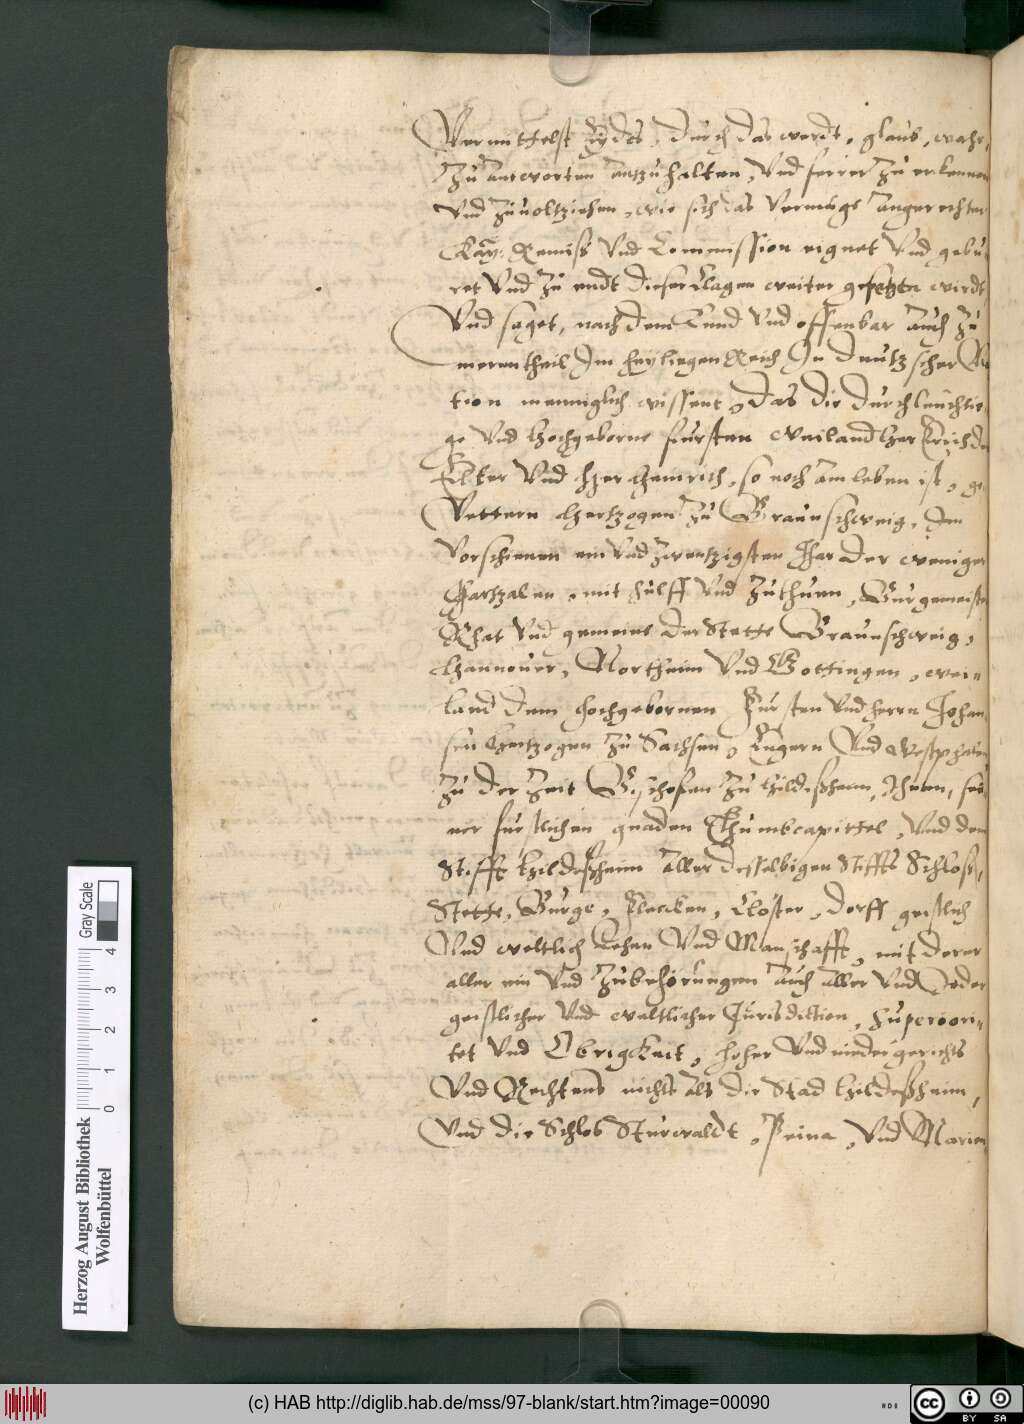 Vermittelst Eydes, durch das wordt, glaub, wahr,
Zu antworten antzuhalten, Vnd ferrer zu erkennen
Vnd zuuoltziehen, wie sich das Vermuge angerechter
Kay: Remiss Vnd Commission eignet Vnd gebu-
ret Vnd zu endt dieser Clagen weiter gesetztn wirdt
Vnd saget, nach dem Kund Vnd offenbar auch zu
merentheil Im heyligen Reich In deutzscher Na
tion menniglich wissent, Das die durchleuchtie
ge Vnd Hochgeborne fursten weiland Her Erich der
Elter Vnd Her Heinrich, so noch am leben ist, ge
Vettern Hertzogen zu Braunschweig, Im
Vorschienen ein Vnd zwentzigsten Jar der weniger
Jartzalen, mit hulff Vnd zuthuen, Burgemeister
Rhat Vnd gemeine der Stette Braunschweig,
Hannouer, Northeim Vnd Gottingen, wei-
land dem hochgebornen Fursten Vnd herrn Johan
sen Hertzogen zu Sachsen, Engern Vnd Westphalen
Zu der Zeit Bischofen zu Hildesheim, seie
ner furstlichen gnaden Thumbcapittel, Vnd dem
Stifft Hildesheim aller desselbigen Stiffts Schlos,
Stette, Burge, Flecken, Closter, dorff geistlich
Vnd weltlich Lehen Vnd Manschafft, mit derer
aller ein Vnd Zubehörungen auch aller Vnd Jeder
geistlicher Vnd weltlicher Jurisdiction, Superiori-
tet Vnd Obrigckeit, hoher Vnd nieder gerichts
Vnd Rechtens nichts als die Stad Hildesheim,
Vnd die Schlos Sturwaldt, Peina, Vnd Marien
Herzog August Bibliothek
Wolfenbüttel
Gray Scale
0 1 2 3 4
(c) HAB http://diglib.hab.de/mss/97-blank/start.htm?image=00090
cc BY SA